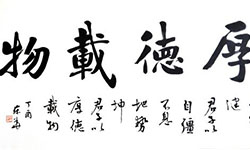 厚德載物
君子以
自彊
不息
地勢
坤
君子以
厚德
載物
丁酉